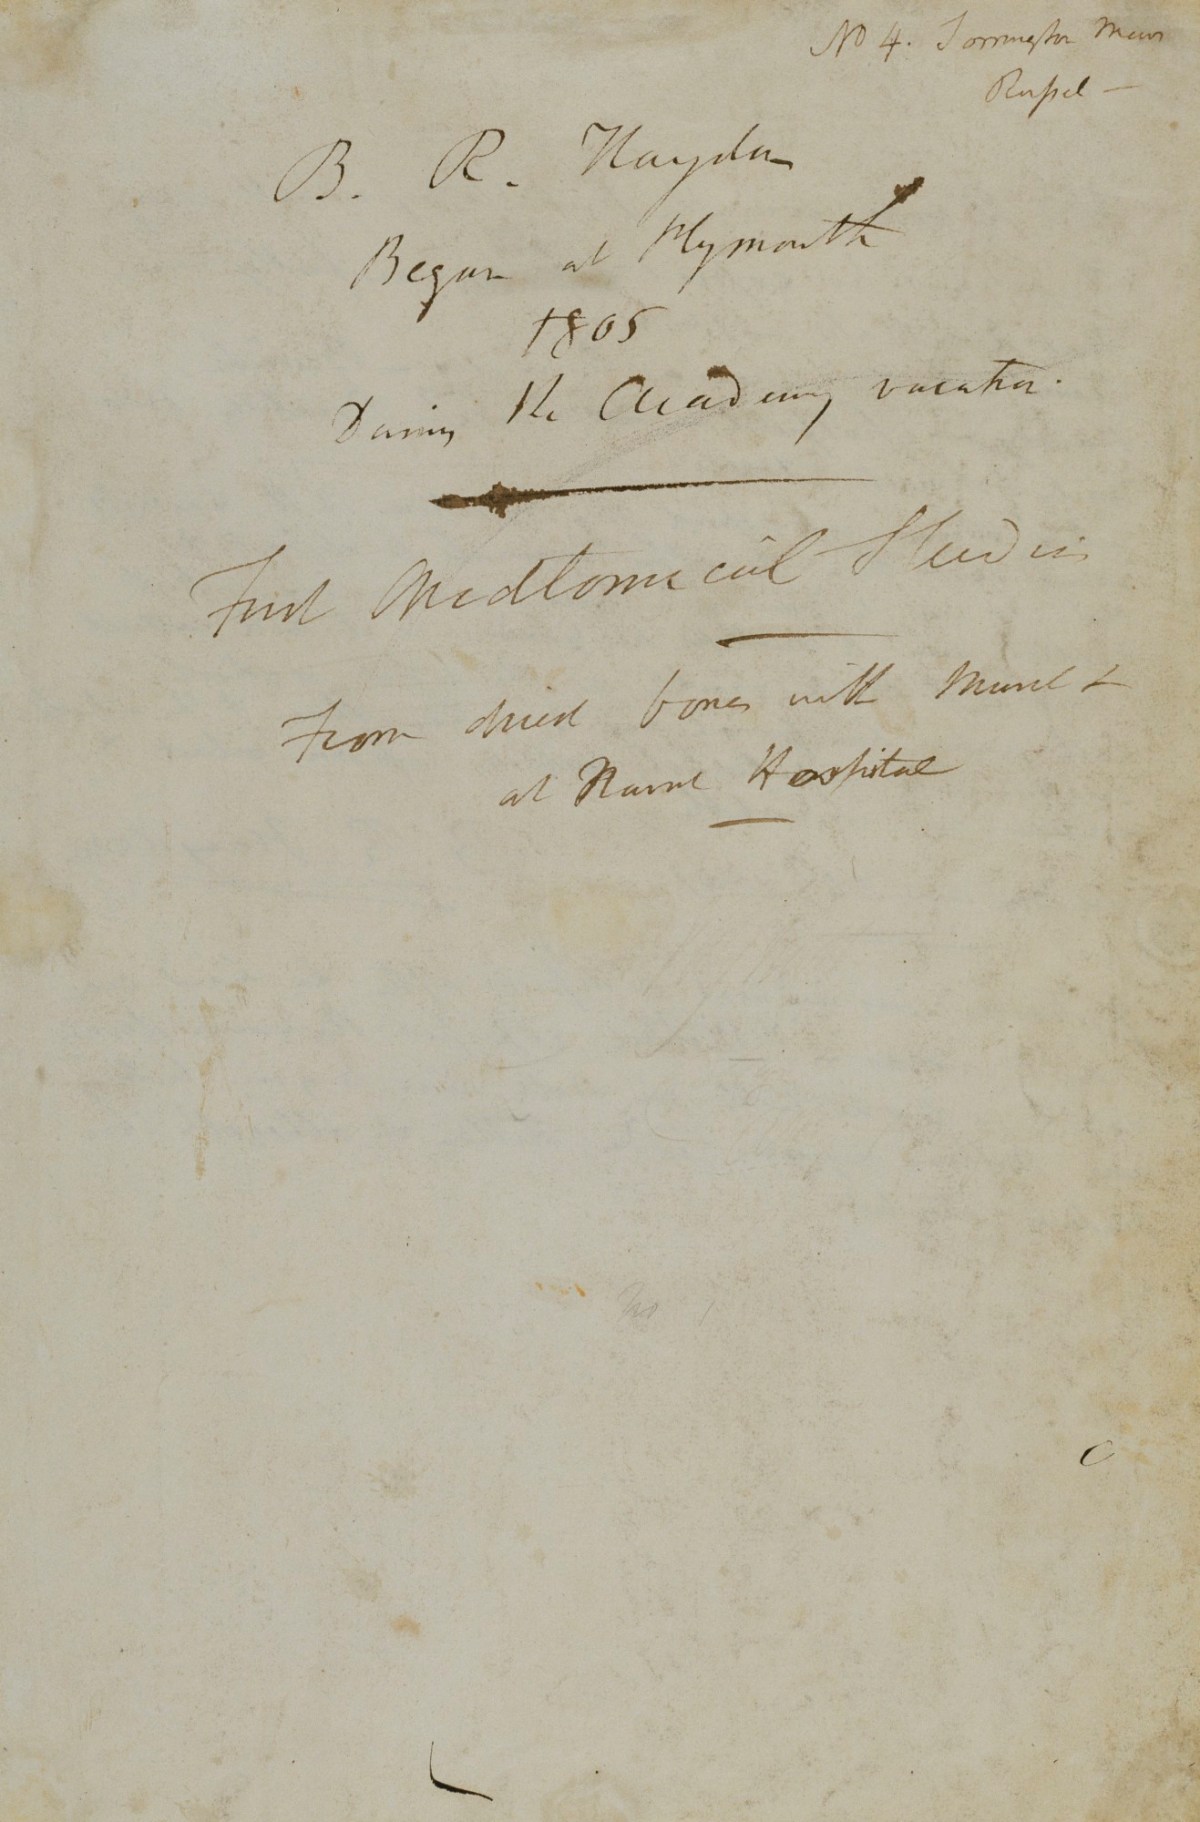 No 4. Torrington Mews
Russel —
B. R. Haydon
Began at Plymouth
1805
During the Academy vacation.
First Anatomical Studies
From dried bones with
at Naval Hospital
No 1